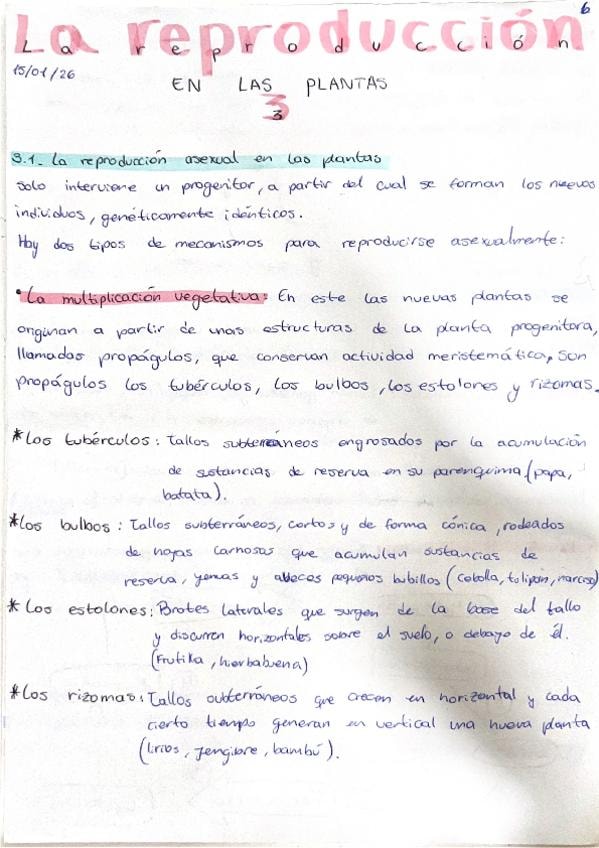 6
La reproducción
15/01/26
EN LAS PLANTAS
3
3.1_ La reproducción asexual en las plantas
Solo interviene un progenitor, a partir del cual se forman los nuevos
individuos, genéticamente idénticos.
Hay dos tipos de mecanismos para reproducirse asexualmente:
•La multiplicación vegetativa: En este las nuevas plantas se
originan a partir de unas estructuras de la planta progenitora,
llamadas propágulos, que conservan actividad meristemática, Son
propágulos los tubérculos, los bulbos, los estolones y rizomas.
*Los tubérculos: Tallos subterráneos engrosados por la acumulación
de sustancias de reserva en su parenquima (papa,
batata).
*Los bulbos: Tallos subterráneos, cortos y de forma cónica, rodeados
de hojas carnosas que acumulan sustancias de
reserva, yemas y a veces pequeños bubillos (cebolla, tolipan, narciso)
*Los estolones: Brotes laterales que surgen de la base del tallo
y discurren horizontales sobre el suelo, o debajo de él.
(Frutilla, hierbabuena)
*Los rizomas: Tallos subterráneos que crecen en horizontal y cada
cierto tiempo generan en vertical una nueva planta
(lirios, Jengibre, bambú).